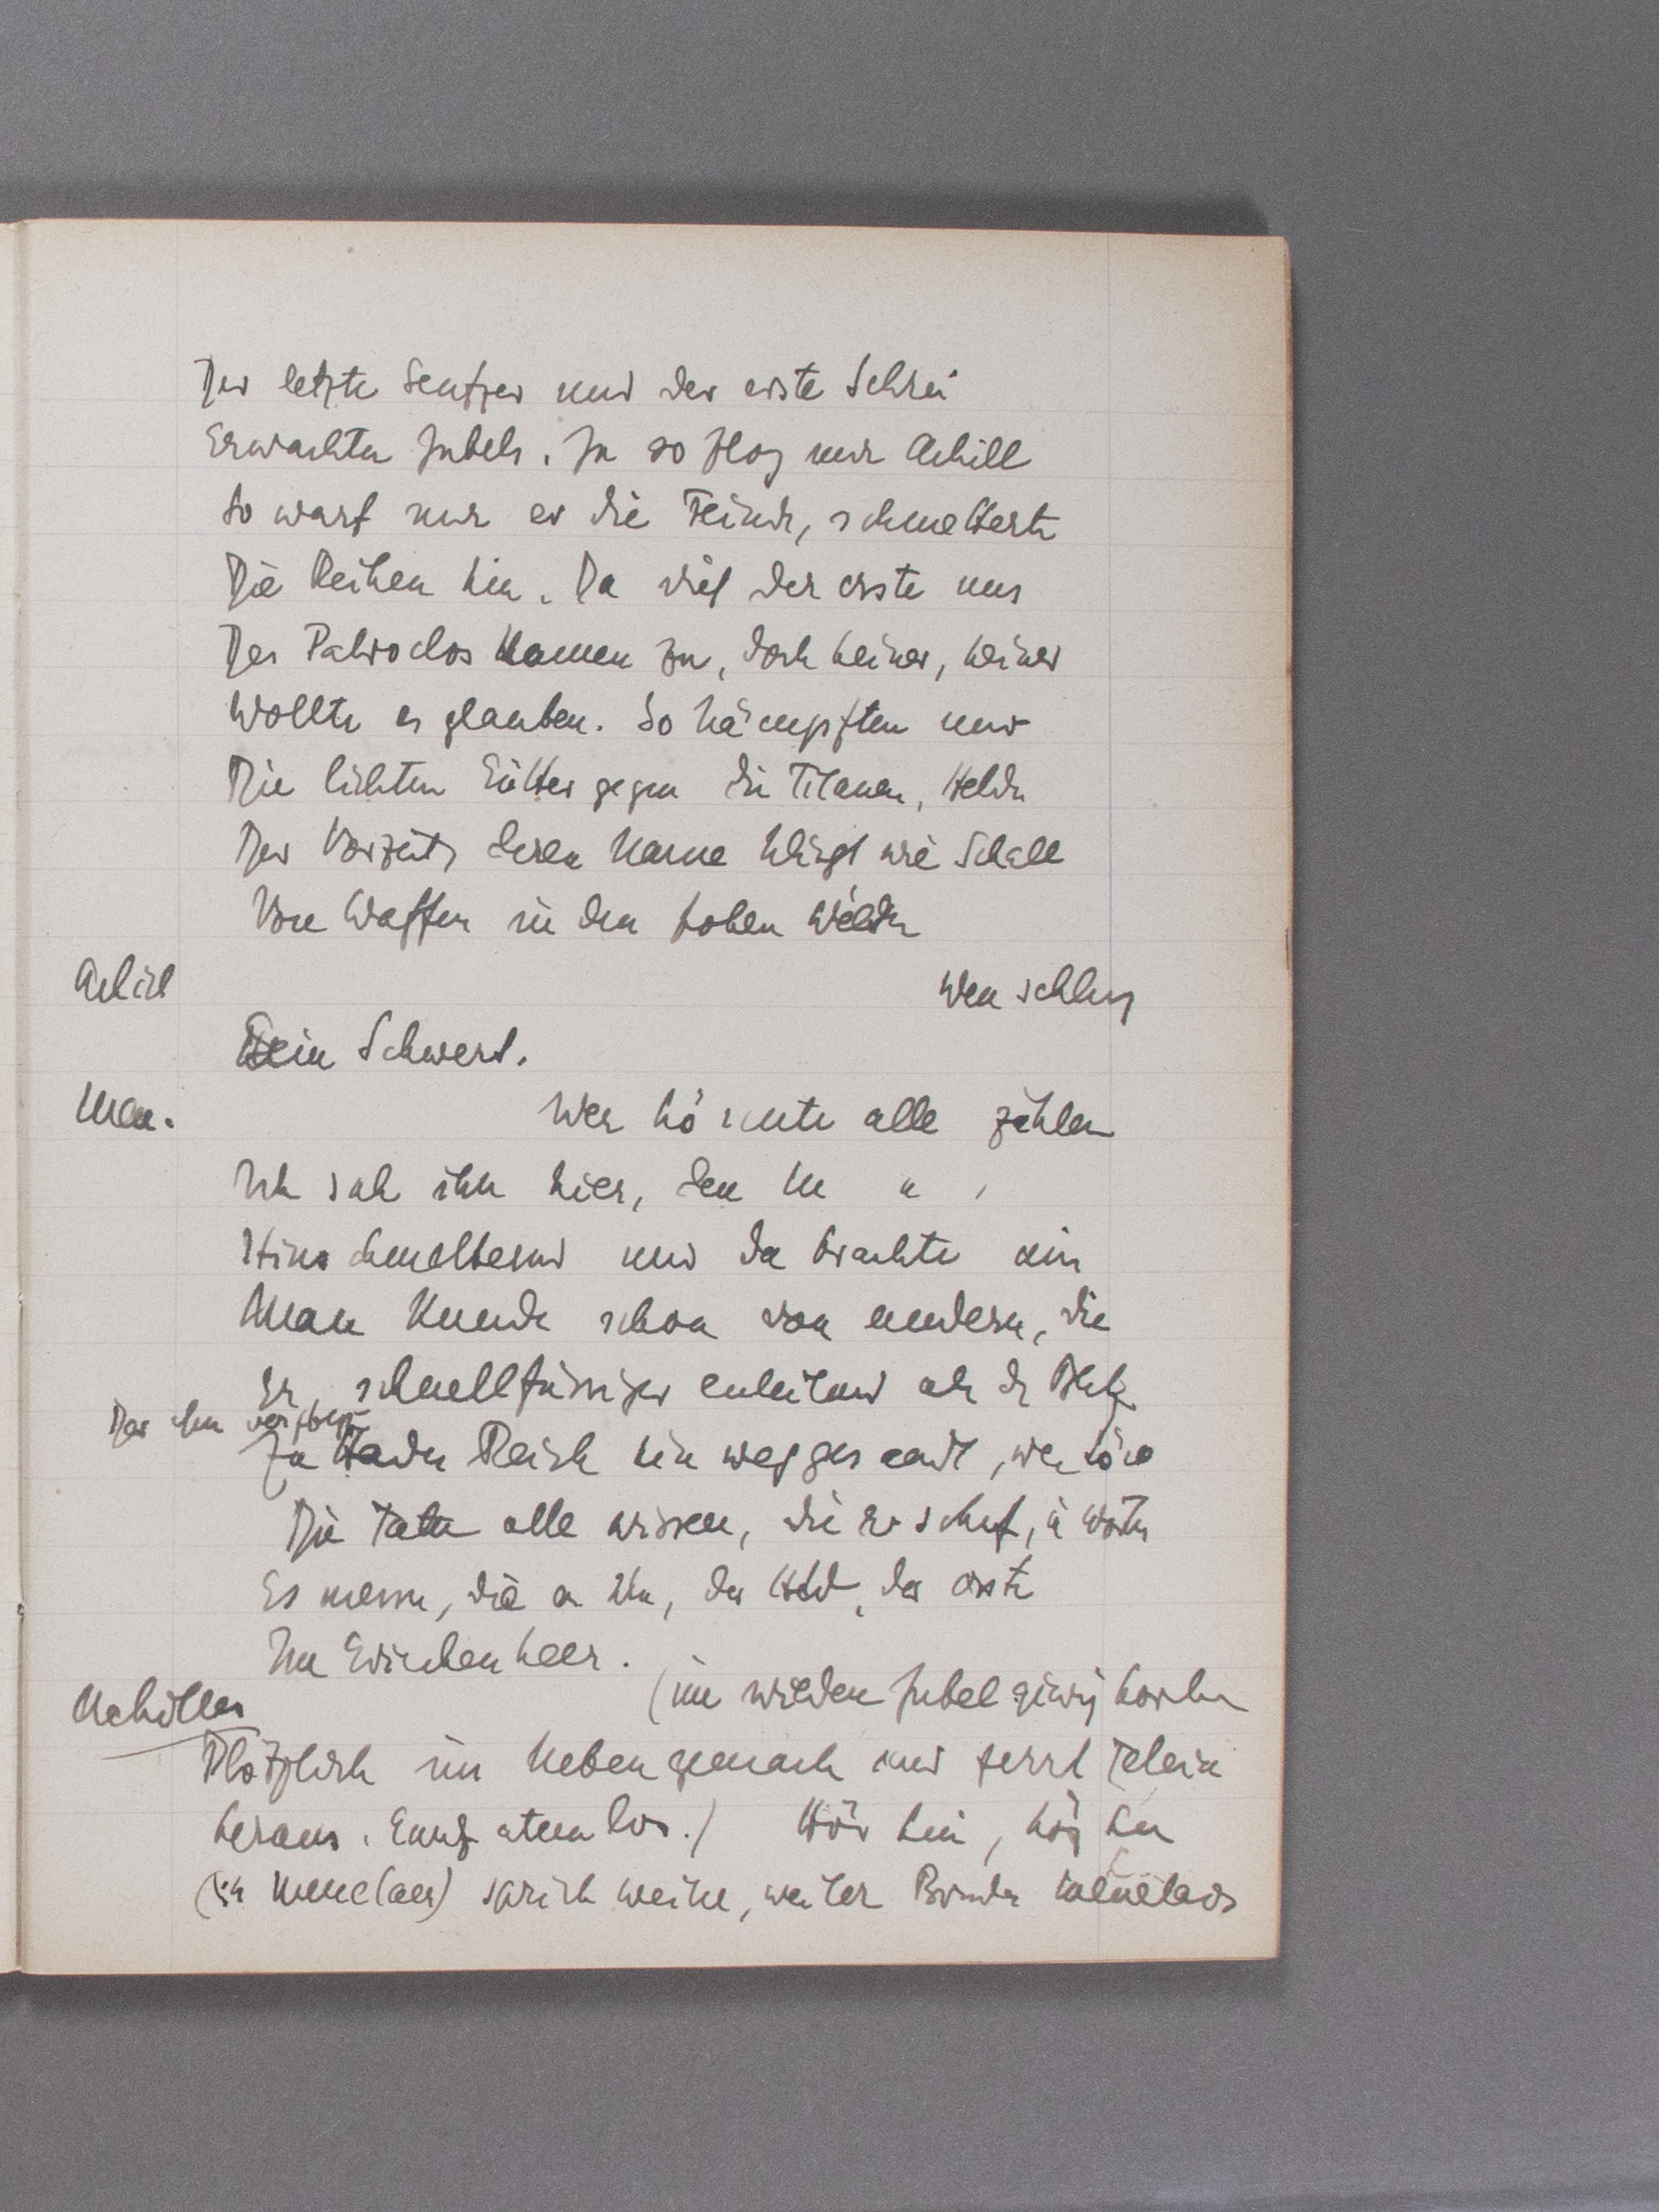 Der letzte Seufzer und der erste Schrei
Erwachten Jubels. Ja so flog nur Achill
So warf nur er die Feinde, schmetterte
Die Reihen hin. Da rief der erste uns
Des Patroclos Namen zu, doch keiner, keiner
Wollte es glauben. So kämpften nur
Die lichten Götter gegen die Titanen, Helden
Der Vorzeit, deren Name klingt wie Schall
Von Waffen in den hohen Wäldern
Achill Wen schlug
Sein Schwert.
Men. Wer könnte alle zählen
Ich sah ihn hier, den M " ,
Hinschmetternd und da brachte ein
Mann Kunde schon von andern, die
Er, schnellfüssiger enteilend als der Blitz
Der ihn verfolgt
Zu Hades Reich hin weggesandt, wer
Die Taten alle wissen, die er schuf, in Worten
Es nennen, die er, der Held, der erste
Im Griechenheer.
Achilles (im wilden Jubel ging horchen
Plötzlich im Nebengemach und zerrt
heraus. Ganz atemlos.) Hör hin, hör hin
(zu Menelaos) sprich weiter, weiter Bruder Menelaos